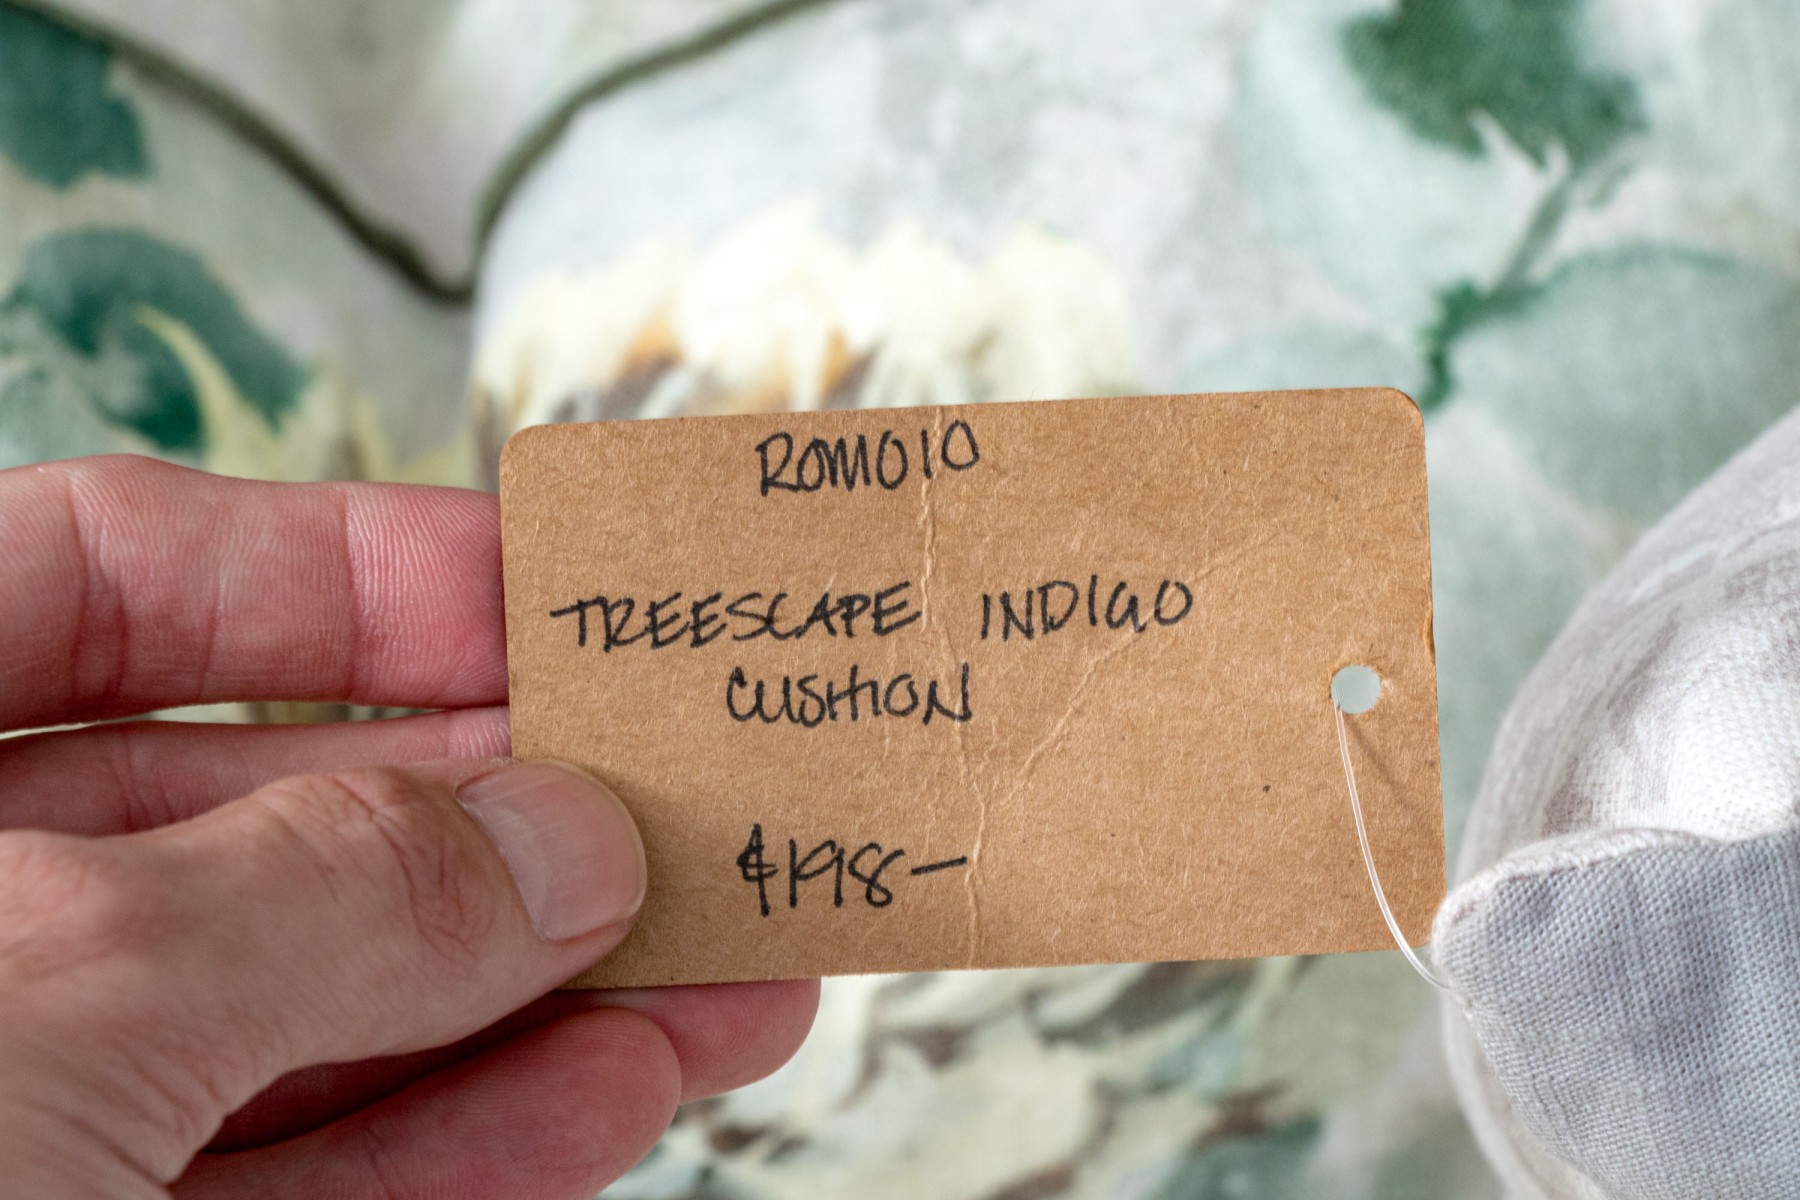 ROMO10
TREESCAPE INDIGO
CUSHION
$198-